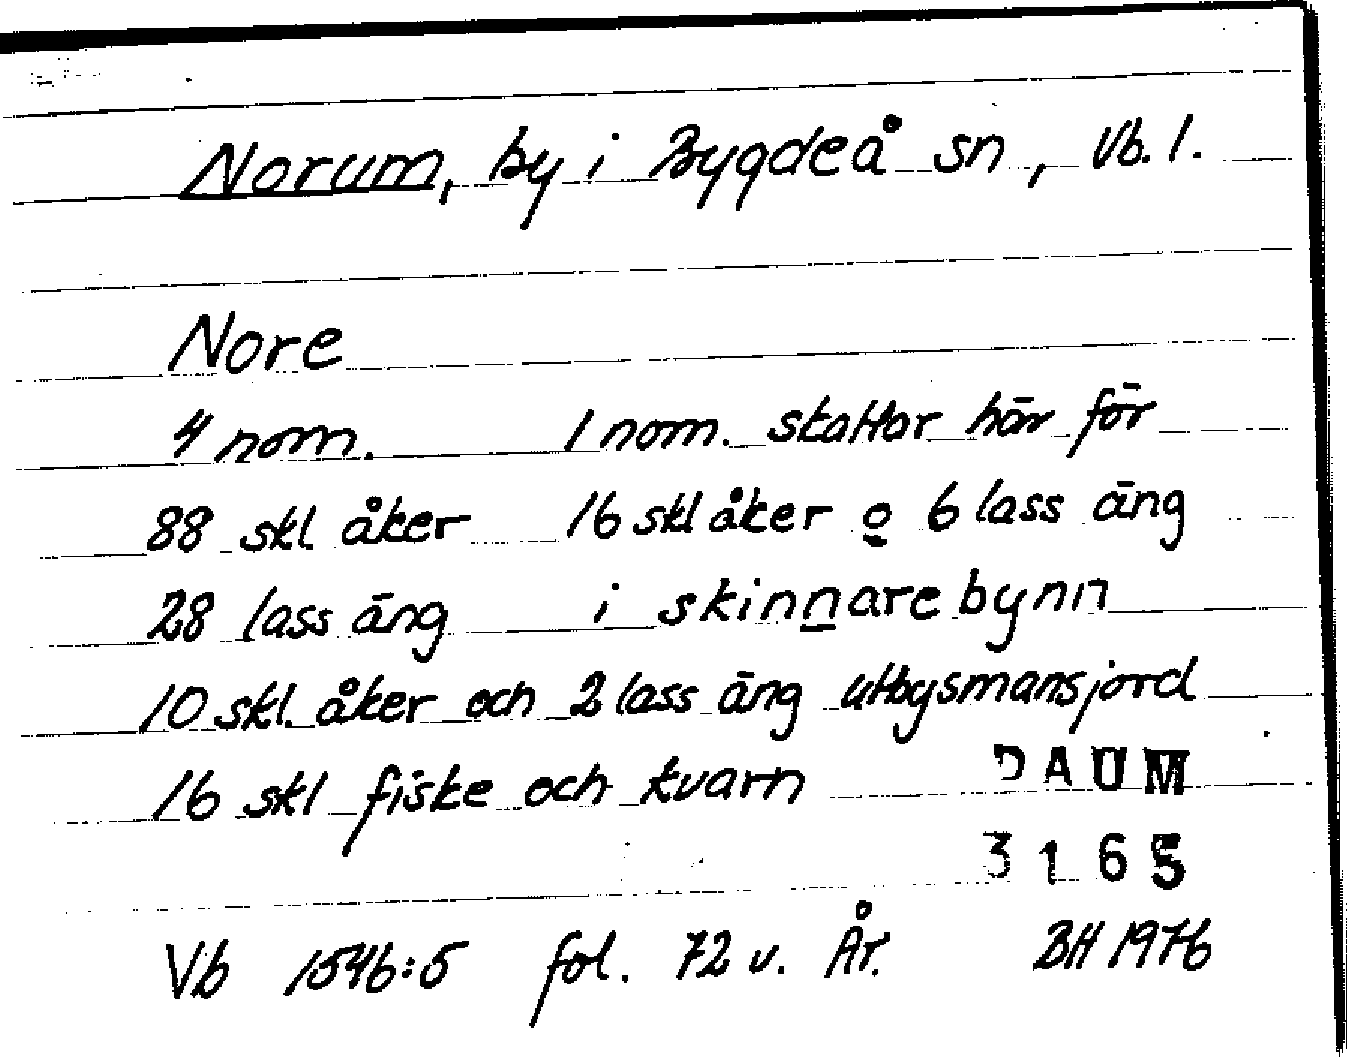 Norum, by i Bygdeå sn, Vb. l.
Nore
4 nom. 1 nom. skattar här för
88 skl. åker 16 skl åker o 6 lass äng
28 lass äng i skinnarebynn
10 skl. åker och 2 lass äng utbysmansjord
16 skl fiske och kvarn
DAUM
3165
Vb 1546:5 fol. 72 v. År. BH 1976